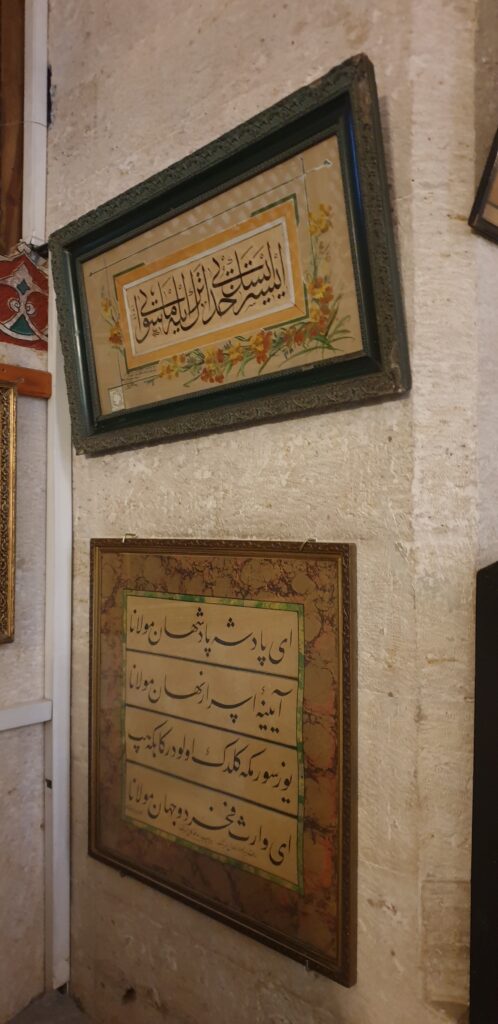 خدایی ترک ایله ماسوایی
ای پادشه پادشهان مولانا
آیینهٔ اسرار نهان مولانا
یوز سورمکه کلدک اولو درکاهکه هپ
ای وارث فخر دو جهان مولانا